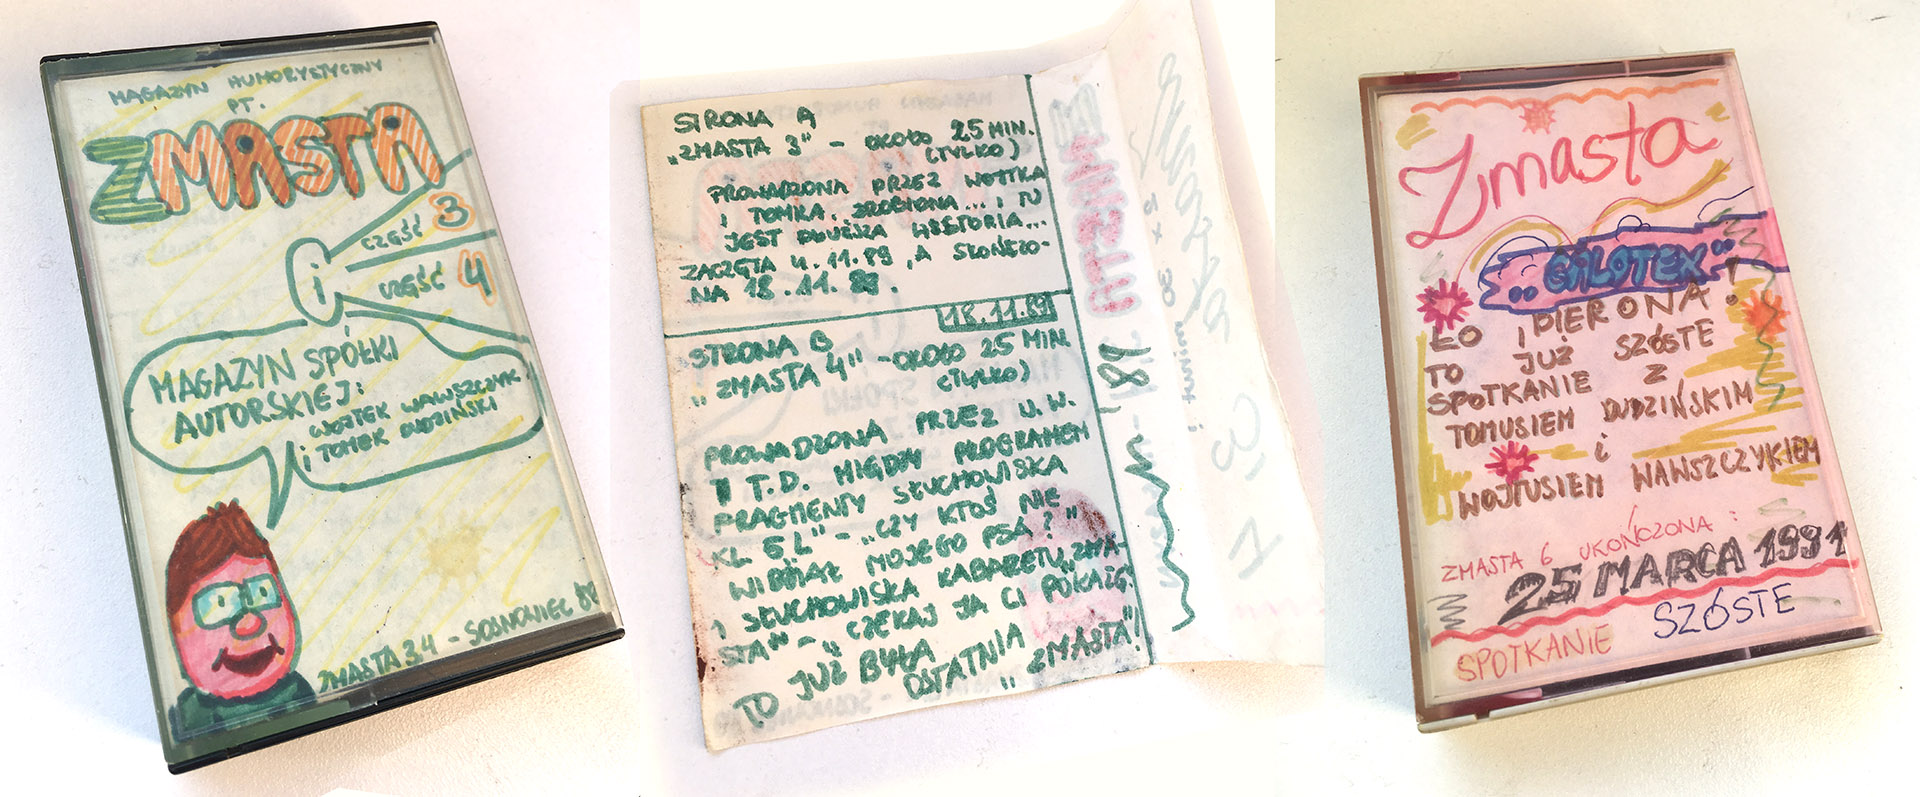 MAGAZYN HUMORYSTYCZNY
PT.
ZMASTA
CZĘŚĆ 3
i
CZĘŚĆ 4
MAGAZYN SPÓŁKI
AUTORSKIEJ:
WOJTEK WAWSZCZYK
i TOMEK DUDZIŃSKI
ZMASTA 3,4 - SOSNOWIEC 89
STRONA A
„ZMASTA 3" - OKOŁO 25 MIN.
(TYLKO)
PROWADZONA PRZEZ WOJTKA
I TOMKA. ZROBIONA... I TU
JEST DŁUŻSZA HISTORIA...
ZACZĘTA 4.11.89, A SKOŃCZO-
NA 18.11.89.
18.11.89
STRONA B
„ZMASTA 4" - OKOŁO 25 MIN.
(TYLKO)
PROWADZONA PRZEZ W.W.
I T.D. MIĘDZY PROGRAMEM
FRAGMENTY SŁUCHOWISKA
KL 5 L" - „CZY KTOŚ NIE
WIDZIAŁ MOJEGO PSA?"
I SŁUCHOWISKA KABARETU „ZMA-
STA" - „CZEKAJ JA CI POKAŻĘ"
TO JUŻ BYŁA
OSTATNIA „ZMASTA"!
Zmasta
"GALOTEX"
ŁO PIERONA!
TO JUŻ SZÓSTE
SPOTKANIE Z
TOMUSIEM DUDZIŃSKIM
i
WOJTUSIEM WAWSZCZYKIEM
ZMASTA 6 UKOŃCZONA:
25 MARCA 1991
SPOTKANIE SZÓSTE